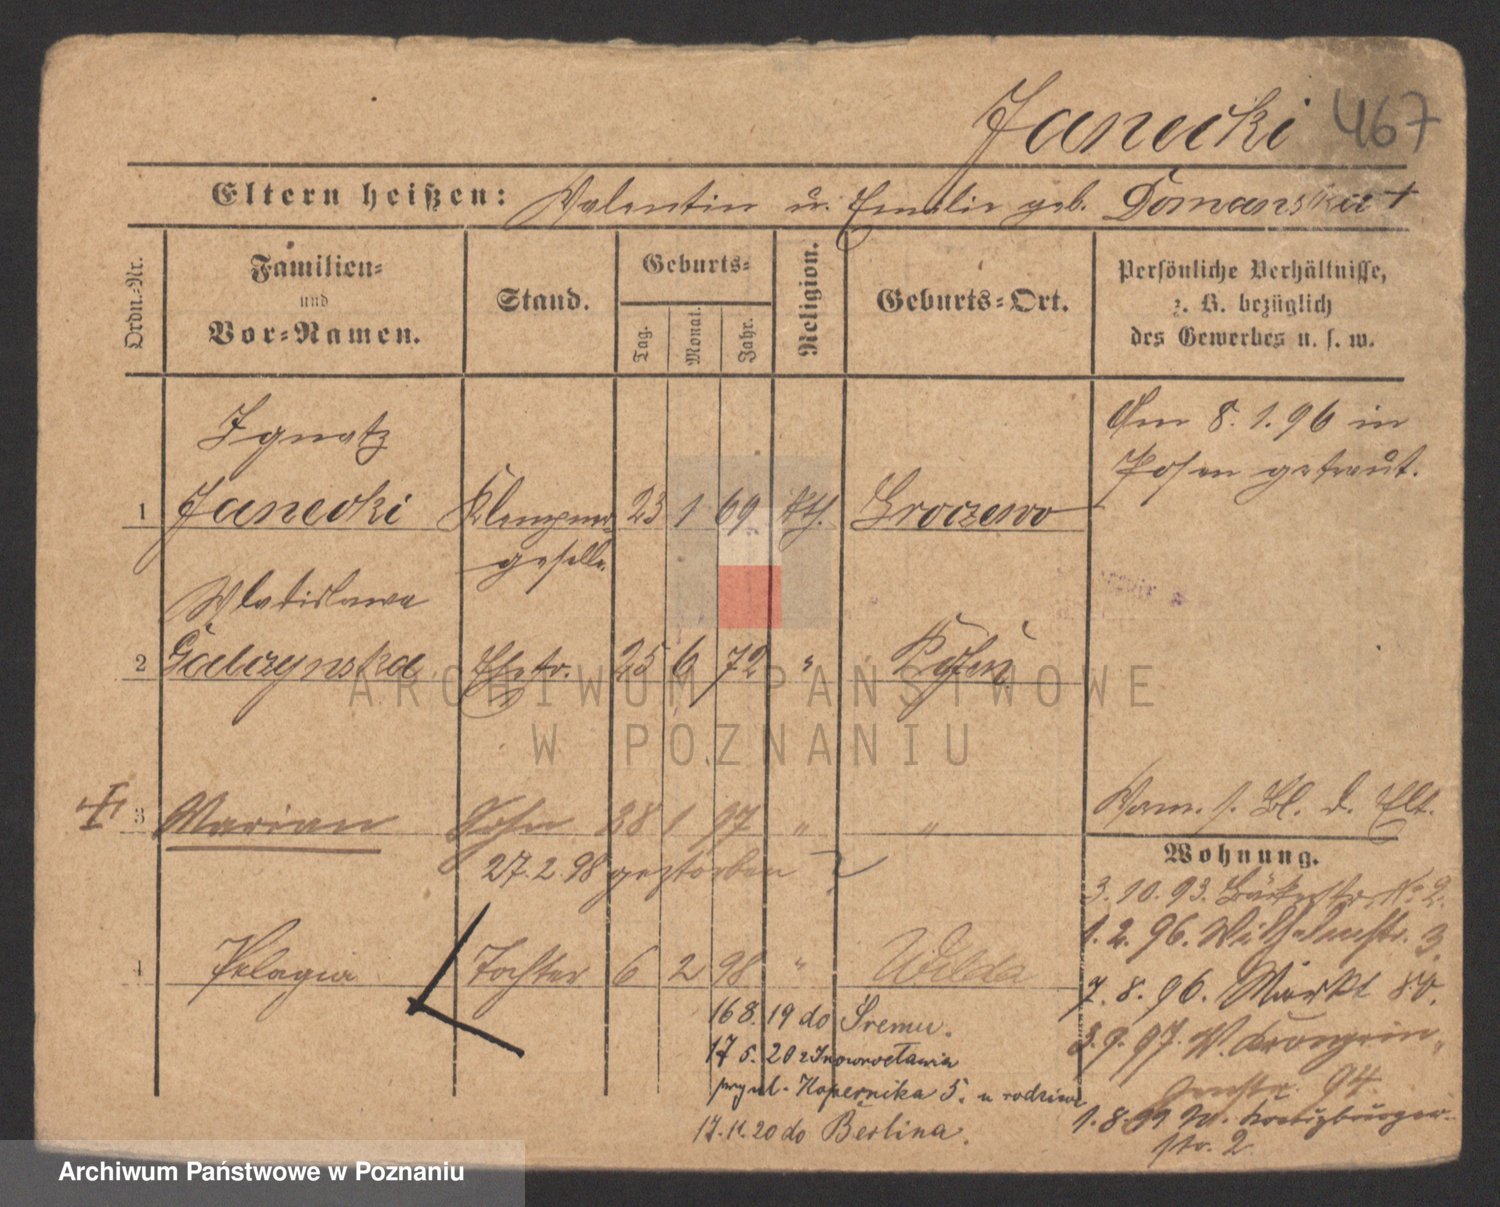 Janecki 467
Eltern heißen: Valentin u. Emilie geb. Domanska +
Ordn.-Nr.
Familien-
und
Vor-Namen.
Stand.
Geburts-
Tag.
Monat.
Jahr.
Religion.
Geburts-Ort.
Persönliche Verhältnisse,
z. B. bezüglich
des Gewerbes u. s. w.
Am 8. 1. 96 in
Posen getraut.
Ignatz
1 Janecki Klempner- 23 1 69 kth. Groczewo
geselle
Wladislawa
2 Galczynska Ehefr. 25 6 72 " Posen
3 Marian Sohn 28 1 97 " "
27. 2. 98 gestorben
4 Pelagia Tochter 6 2 98 " Wilda
Vorm. s. Bl. d. Elt.
Wohnung.
3. 10. 93. Bäckerstr. No 2.
1. 2. 96. Wilhelmstr. 3
7. 8. 96. Markt 80.
3. 9. 97. W. Kronprin-
zenstr. 94.
1. 8. 99 W. Kreuzburger-
str. 2
16 8. 19 do Śremu.
17 5. 20 z Inowrocławia
przy ul. Kopernika 5. u rodziców
17. 11. 20 do Berlina.
ARCHIWUM PAŃSTWOWE
W POZNANIU
Archiwum Państwowe w Poznaniu